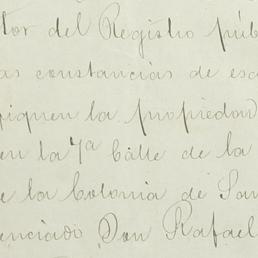 tor del Registro púb
as constancias de es
ifiquen la propiedad
en la 7ª Calle de la
e la Colonia de San
enciado Don Rafael